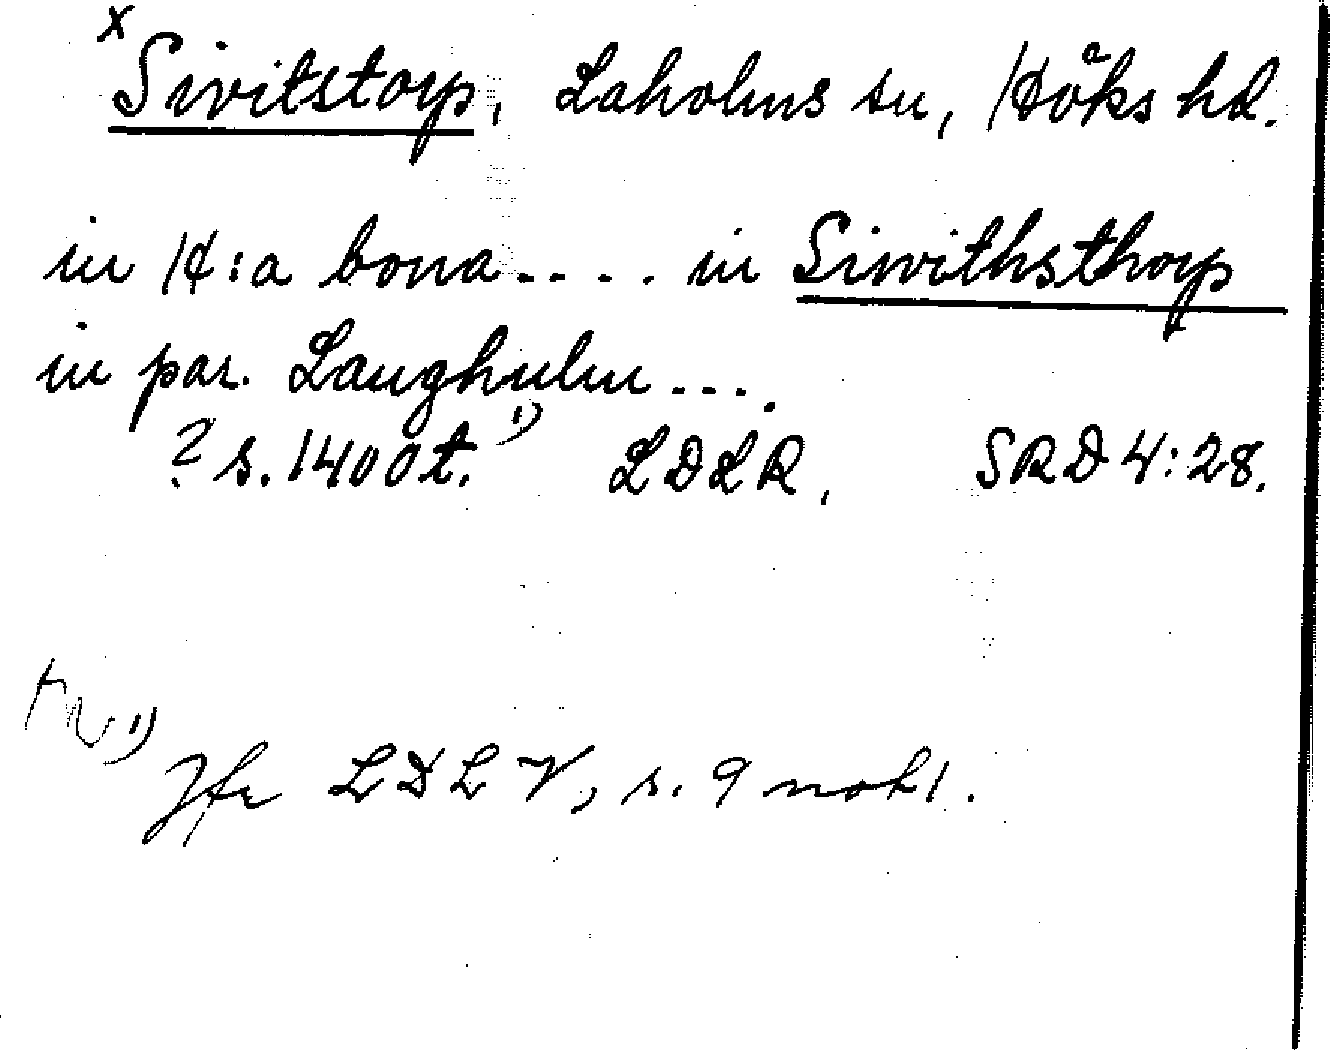 x Sivitstorp, Laholms sn, Höks hd.
in H:a bona.... in Siwithsthorp
in par. Laugholm....
? s. 1400t. 1) LDLR, SRD 4:28.
1) Jfr LDL V, s. 9 not 1.